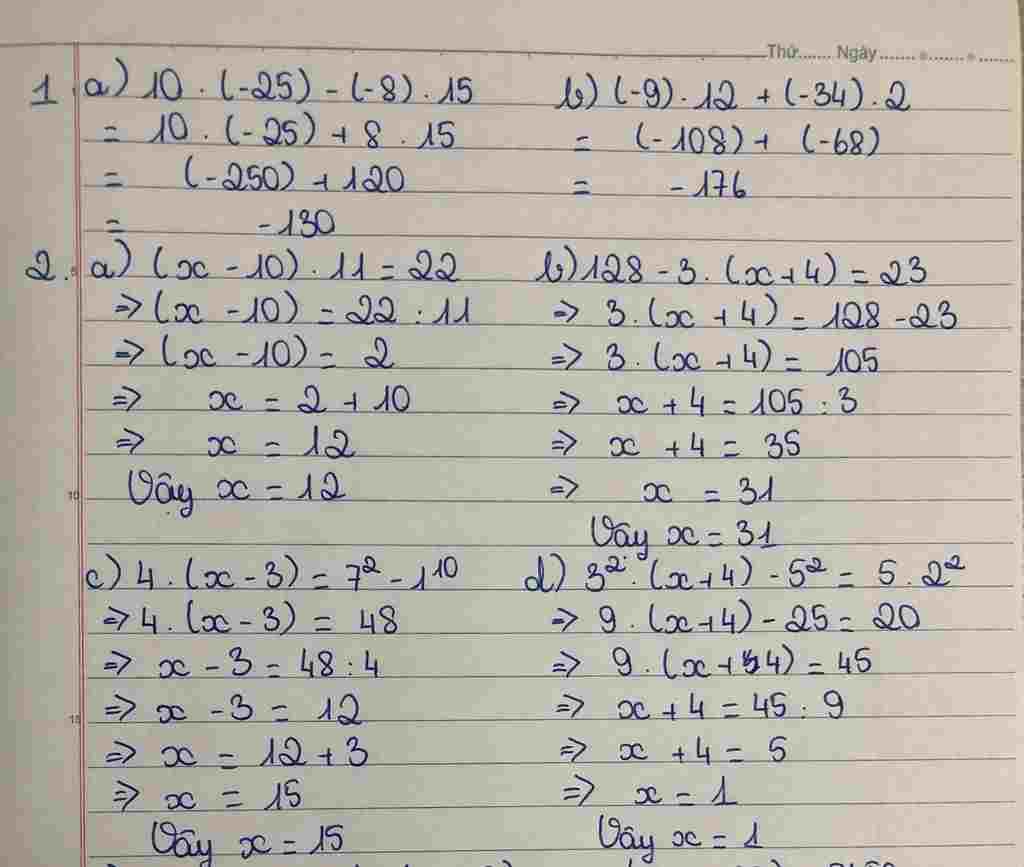 Thứ...... Ngày.......
1. a) 10 . (-25) - (-8) . 15
= 10 . (-25) + 8 . 15
= (-250) + 120
= -130
b) (-9) . 12 + (-34) . 2
= (-108) + (-68)
= -176
2. a) (x - 10) . 11 = 22
=> (x - 10) = 22 : 11
=> (x - 10) = 2
=> x = 2 + 10
=> x = 12
Vậy x = 12
b) 128 - 3 . (x + 4) = 23
=> 3 . (x + 4) = 128 - 23
=> 3 . (x + 4) = 105
=> x + 4 = 105 : 3
=> x + 4 = 35
=> x = 31
Vậy x = 31
10
c) 4 . (x - 3) = 7² - 1¹⁰
=> 4 . (x - 3) = 48
=> x - 3 = 48 : 4
=> x - 3 = 12
=> x = 12 + 3
=> x = 15
Vậy x = 15
d) 3² . (x + 4) - 5² = 5 . 2²
=> 9 . (x + 4) - 25 = 20
=> 9 . (x + 4) = 45
=> x + 4 = 45 : 9
=> x + 4 = 5
=> x = 1
Vậy x = 1
15